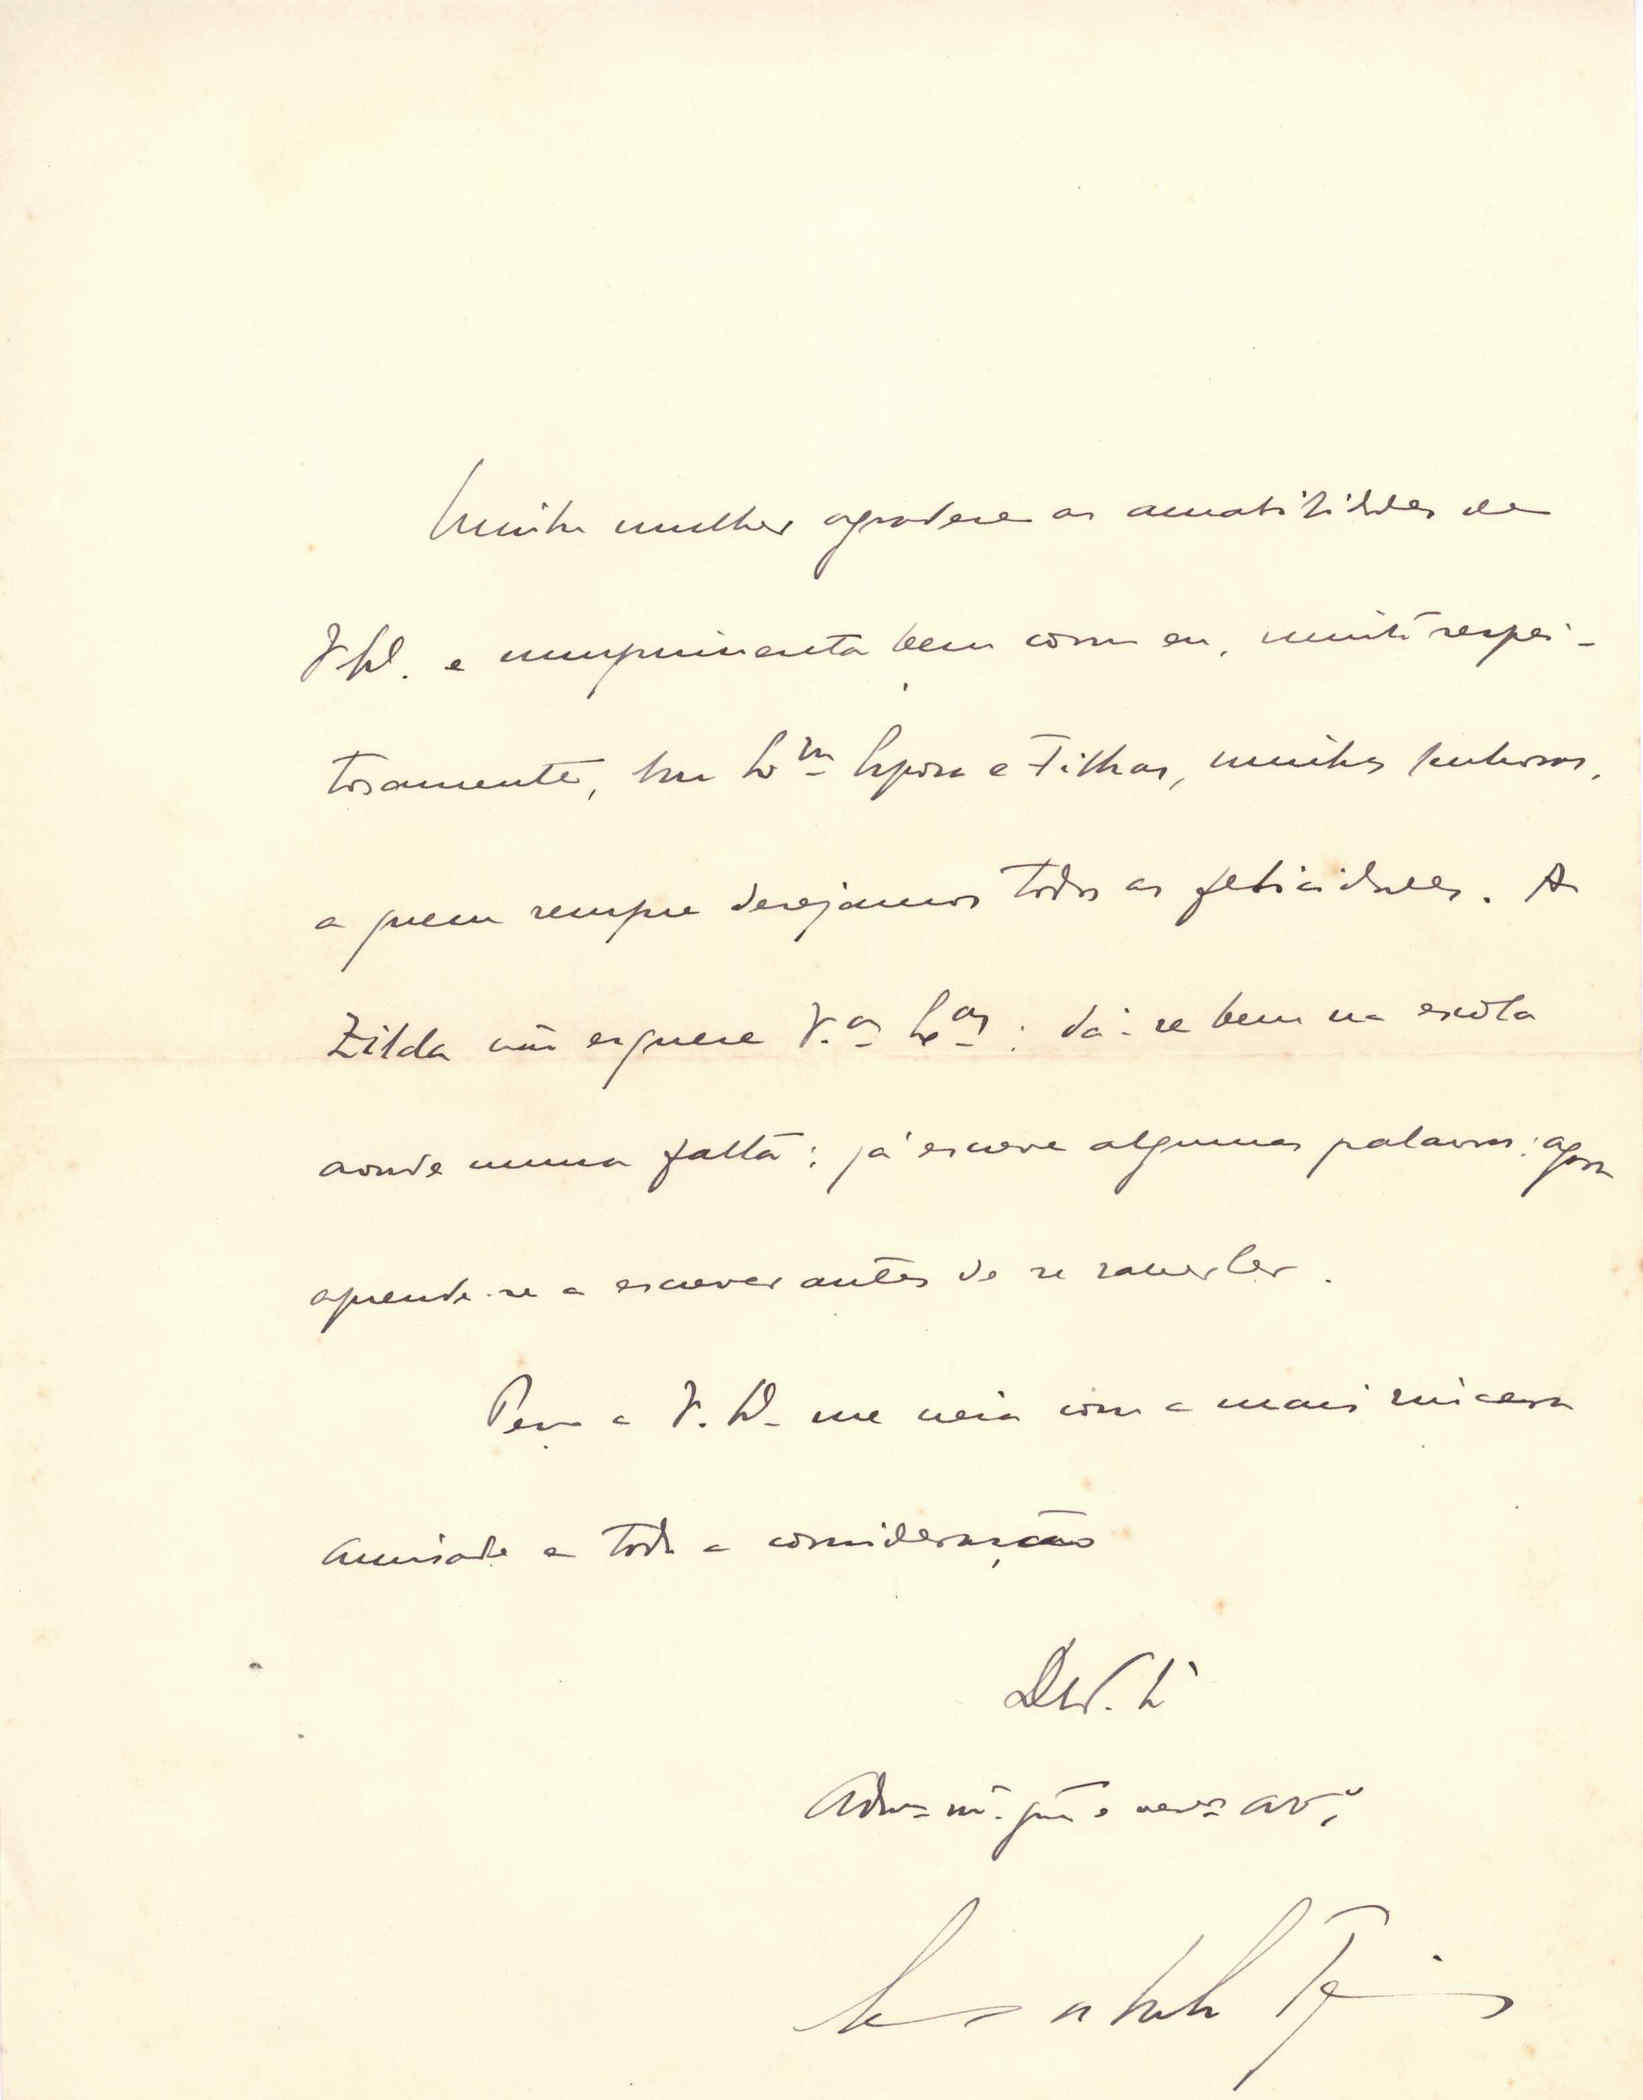 Minha mulher agradece as amabilidades de
V. Ex. e cumprimenta bem como eu, muito respei-
tosamente, Sua Ex.ma Esposa e Filhas, minhas senhoras,
a quem sempre desejamos todas as felicidades. A
Zilda não esquece V.as Ex.as: dá-se bem na escola
aonde nunca falta; já escreve algumas palavras: agora
aprende-se a escrever antes de se saber ler.
Peço a V. Ex. me creia com a mais sincera
amisade e toda a consideração
De V. Ex.